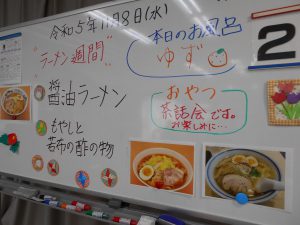 令和5年11月8日(水)
"ラーメン週間"!!
醤油ラーメン
もやしと
若布の酢の物
本日のお風呂
ゆず
おやつ
茶話会です。
お楽しみに…
2